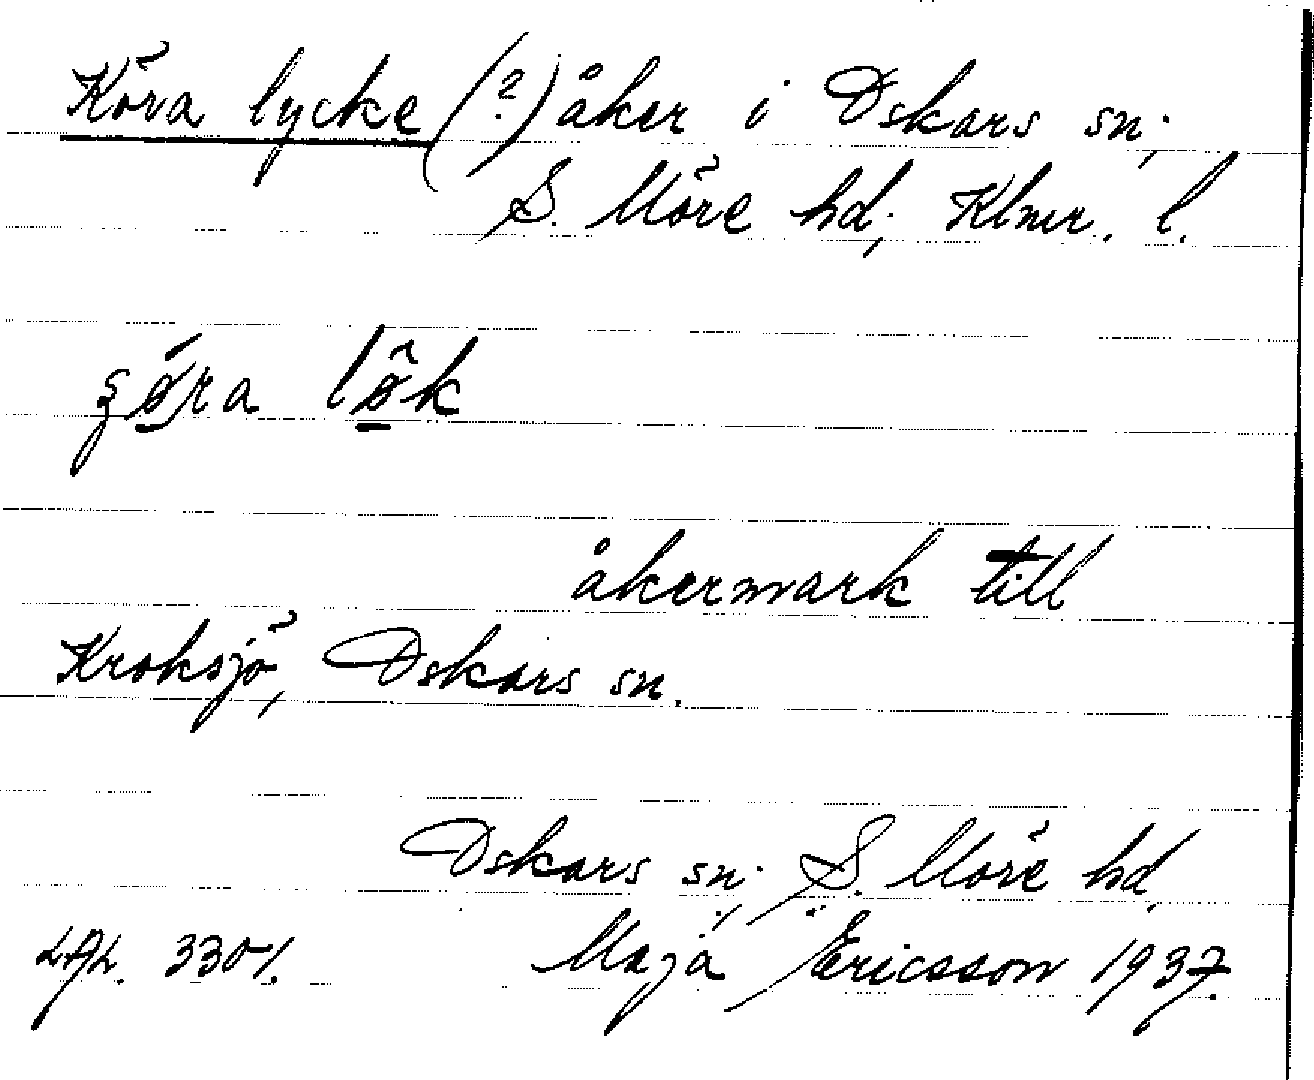 Köra lycke (?) åker i Oskars sn;
S. Möre hd; Klmr. l.
åkermark till
Kroksjö, Oskars sn.
Oskars sn; S. Möre hd,
Maja Ericsson 1937.